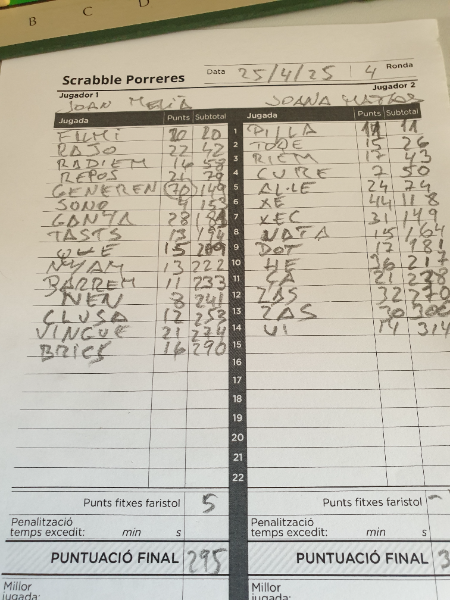 B C D
Scrabble Porreres Data 25/4/25 4 Ronda
Jugador 1 Jugador 2
JOAN MELIÀ JOANA
Jugada Punts Subtotal Jugada Punts Subtotal
FILMI 20 20 1 PILLA 11 11
RAJO 22 42 2 15 26
RADIEM 16 58 3 RIEM 17 43
REPOS 21 79 4 CURE 7 50
GENEREN (70) 149 5 24 74
SONO 4 153 6 XE 44 118
28 181 7 XEC 31 149
TASTS 13 194 8 NATA 15 164
QUE 15 209 9 DOT 17 181
NYAM 13 222 10 HE 36 217
BARREM 11 233 11 ÇA 21 238
NEN 8 241 12 ZAS 32 270
CLUSA 12 253 13 ZAS 30 300
VINGUE 21 274 14 UI 14 314
BRICS 16 290 15
16
17
18
19
20
21
22
Punts fitxes faristol 5 Punts fitxes faristol -
Penalització Penalització
temps excedit: min s temps excedit: min s
PUNTUACIÓ FINAL 295 PUNTUACIÓ FINAL 3
Millor Millor
jugada: jugada: